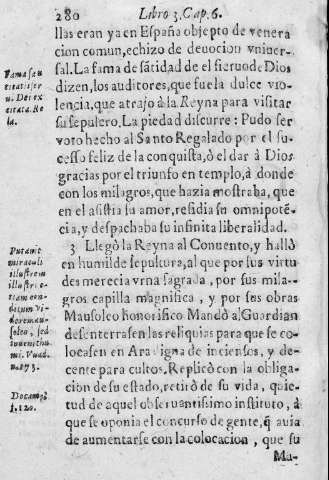 280 Libro 3. Cap. 6.
llas eran ya en España objepto de venera
cion comun, echizo de deuocion vniuer-
sal. La fama de sātidad de el sieruo de Dios
dizen, los auditores, que fue la dulce vio-
lencia, que atrajò à la Reyna para visitar
su sepulcro. La piedad discurre: Pudo ser
voto hecho al Santo Regalado por el su-
cesso feliz de la conquista, ò el dar à Dios
gracias por el triunfo en templo, à donde
con los milagros, que hazia mostraba, que
en el asistia su amor, residia su omnipotē-
cia, y despachaba su infinita liberalidad.
3 Llegò la Reyna al Conuento, y hallò
en humilde sepultura, al que por sus virtu
des merecia vrna sagrada, por sus mila-
gros capilla magnifica, y por sus obras
Mausoleo honorifico Mandò al Guardian
desenterrasen las reliquias para que se co-
locasen en Ara digna de inciensos, y de-
cente para cultos. Replicò con la obliga-
cion de su estado, retirò de su vida, quie-
tud de aquel obseruantissimo instituto, à
que se oponia el concurso de gente, q̄ auia
de aumentarse con la colocacion, que su
Ma-
Fama san
titatis ser
u. Dei ex
citata Re
la.
miraculi
illustrem
illustri
tiam con-
ditum vi-
mau-
soleo, sed
n. 273.
f. 120.